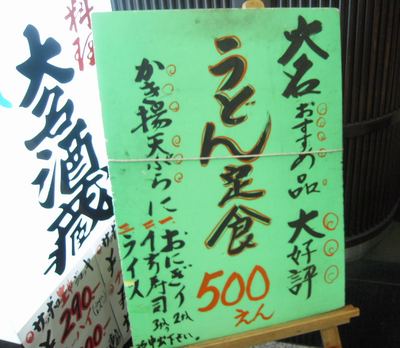 大名おすすめ品 大好評
うどん定食
500
えん
かき揚天ぷらに
おにぎり 2ヶ
イナリ寿司 3ヶ
ライス
料理
大名酒蔵
290